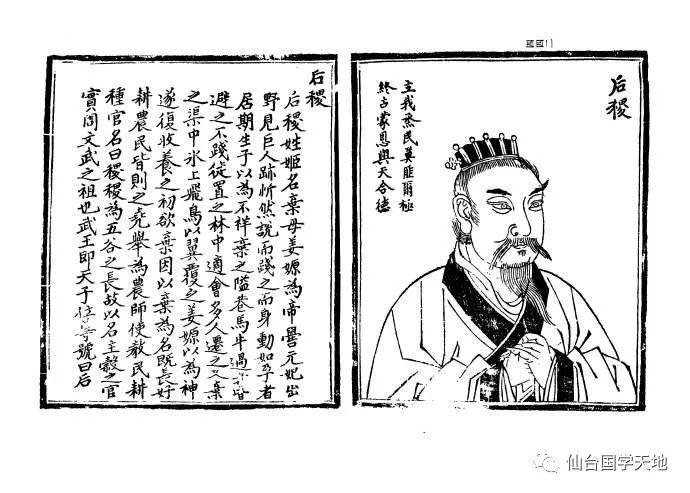 后稷
立我烝民莫匪爾極
終古蒙恩與天合德
后稷
后稷姓姬名棄母姜嫄為帝嚳元妃出
野見巨人跡忻然說而踐之而身動如孕者
居期生子以為不祥棄之隘巷馬牛過皆
避之不踐徙置之林中適會多人遷之又棄
之渠中氷上飛鳥以翼覆之姜嫄以為神
遂復收養之初欲棄因以棄為名既長好
耕農民皆則之堯舉為農師使敎民耕
種官名曰稷稷為五谷之長故以名主穀之官
實周文武之祖也武王即天子位尊號曰后
仙台国学天地